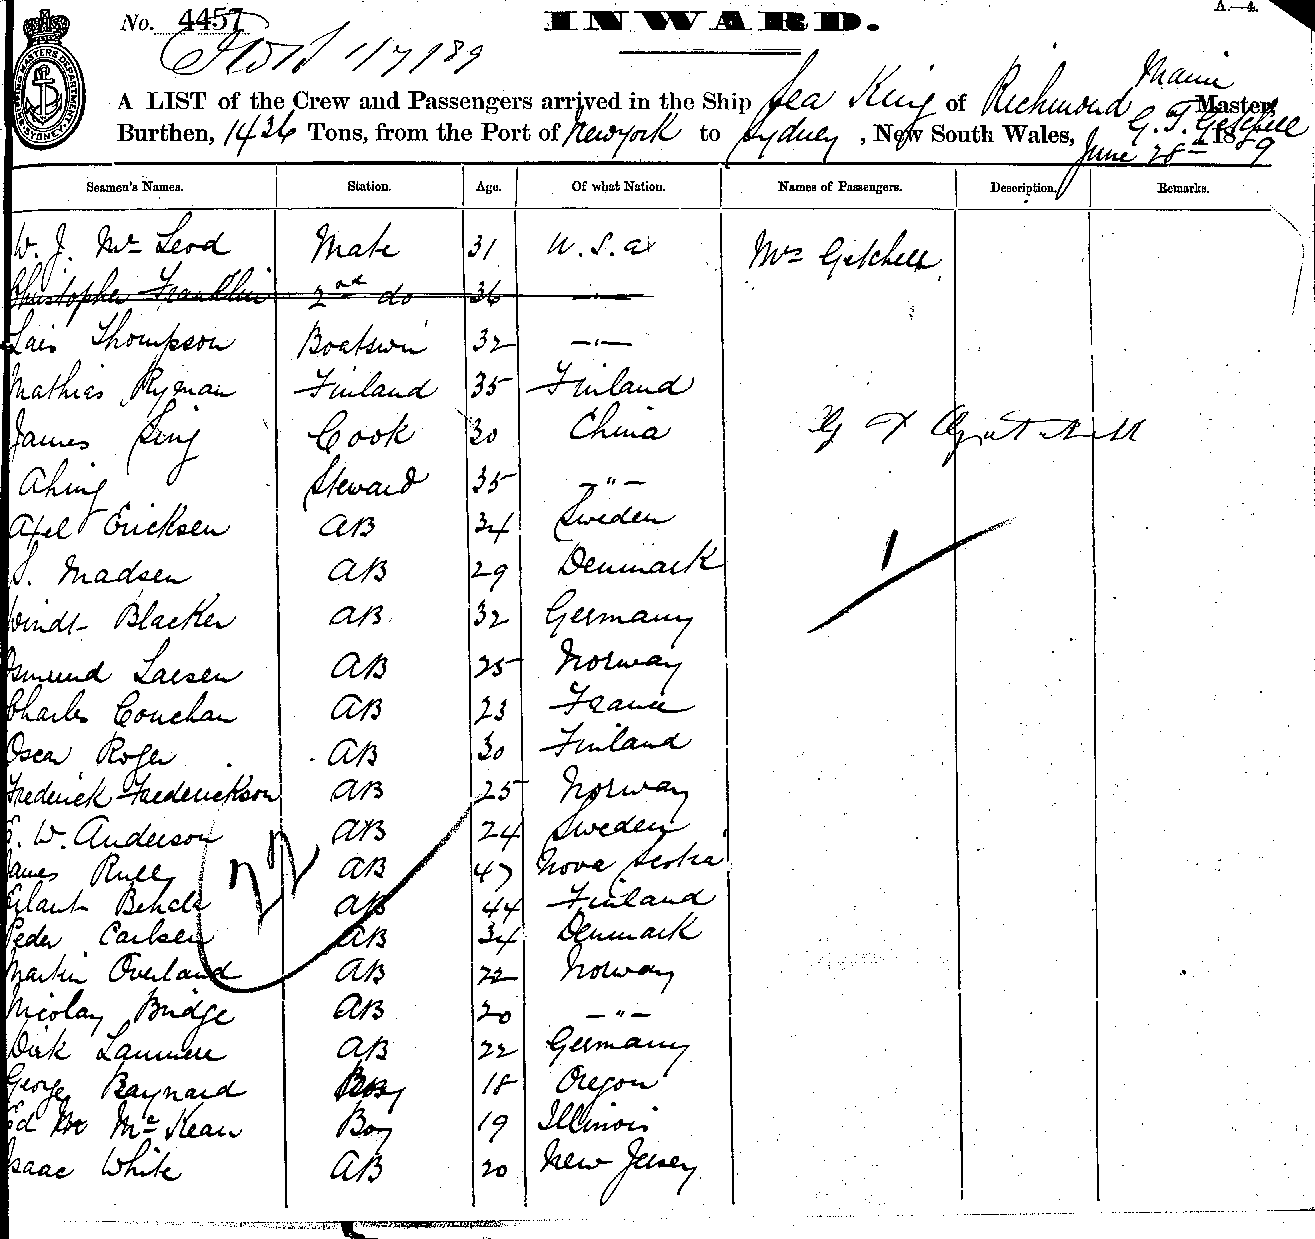 A.—4.
No. 4457 INWARD.
1/7/89
A LIST of the Crew and Passengers arrived in the Ship Sea King of Richmond Maine Master,
G. T. Getchell
Burthen, 1436 Tons, from the Port of Newyork to Sydney, New South Wales, June 28th 1889
Seamen's Names. Station. Age. Of what Nation. Names of Passengers. Description. Remarks.
W. J. Mc Leod Mate 31 U.S.a Mrs Getchell
Christopher Franklin 2nd do 36 —"—
Lais Thompson Boatswin 32 —"—
Mathias Ryman Finland 35 Finland
James Sing Cook 30 China
Ahing Steward 35 —"—
Axel Ericksen AB 34 Sweden
S. Madsen AB 29 Denmark
Windt Blacker AB 32 Germany
Osmund Larsen AB 25 Norway
Charles Conchan AB 23 France
Oscar Roger AB 30 Finland
Frederick Frederickson AB 25 Norway
E. W. Anderson AB 24 Sweden
James Rully AB 47 Nova Scotia
AB 44 Finland
Peder Carlsen AB 34 Denmark
Martin Overland AB 22 Norway
Nicolay Bridge AB 20 —"—
Dirk AB 22 Germany
George Raynard Boy 18 Oregon
Ed Mc Kean Boy 19 Illinois
Isaac White AB 20 New Jersey
22
1